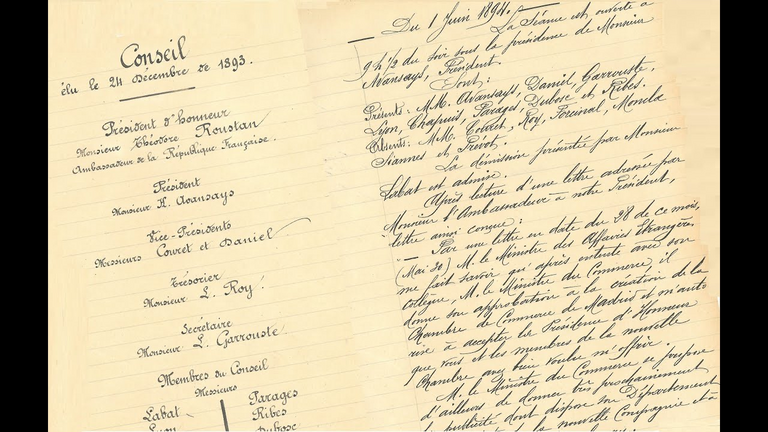 Conseil
élu le 24 Décembre de 1893.
Président d'honneur
Monsieur Théodore Roustan
Ambassadeur de la République Française.
Président
Monsieur H. Avansays
Vice-Présidents
Messieurs Couret et Daniel
Trésorier
Monsieur L. Roy
Secrétaire
Monsieur L. Garrouste
Membres du Conseil
Messieurs
Labat Parages
Lyon Ribes
Dubosc
— Du 1 Juin 1894. —
La Séance est ouverte à
9 h 1/2 du soir sous la présidence de Monsieur
Avansays, Président.
Sont:
Présents: M.M. Avansays, Daniel, Garrouste,
Lyon, Chapuis, Parages, Dubosc et Ribes.
Absents: M.M. Couret, Roy, Forcinal,
Siannes et Prévot.
La démission présentée par Monsieur
Labat est admise.
Après lecture d'une lettre adressée par
Monsieur l'Ambassadeur à notre Président,
lettre ainsi conçue:
"— Par une lettre en date du 28 de ce mois,
(Mai 30) M. le Ministre des Affaires Etrangères
me fait savoir qu'après entente avec son
collègue, M. le Ministre du Commerce, il
donne son approbation à la création de la
Chambre de Commerce de Madrid et m'auto
rise à accepter la Présidence d'Honneur
que vous et les membres de la nouvelle
Chambre avez bien voulu m'offrir.
M. le Ministre du Commerce se propose
d'ailleurs de donner très prochainement
la publicité dont dispose son Département
la nouvelle Compagnie et à